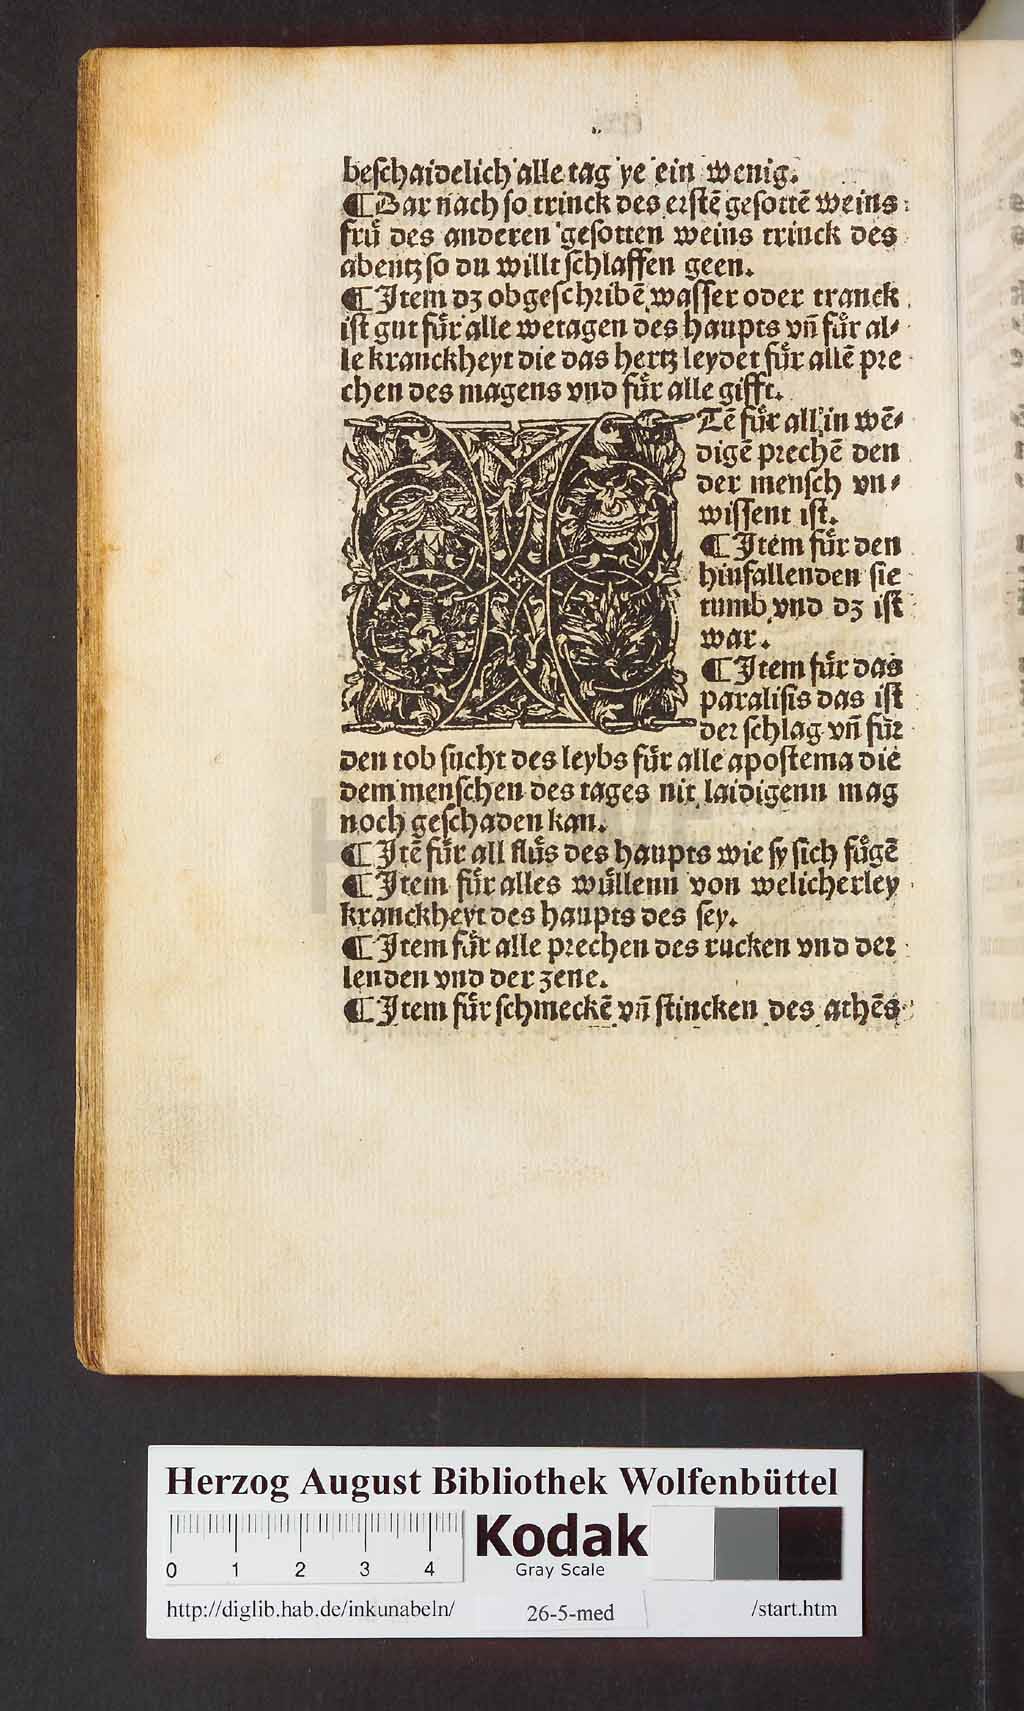 beschaidelich alle tag ye ein wenig.
¶ Dar nach so trinck des erstē gesottē weins
frůͤ des anderen gesotten weins trinck des
abentz so du willt schlaffen geen.
¶ Item dz obgeschribē wasser oder tranck
ist gut fuͤr alle wetagen des haupts vn̄ fuͤr al⸗
le kranckheyt die das hertz leydet fuͤr allē pre
chen des magens vnd fuͤr alle gifft.
Tē fuͤr all in wē⸗
digē prechē den
der mensch vn⸗
wissent ist.
¶ Item fuͤr den
hinfallenden sie
tumb vnd dz ist
war.
¶ Item fuͤr das
paralisis das ist
der schlag vn̄ fuͤr
den tob sucht des leybs fuͤr alle apostema die
dem menschen des tages nit laidigenn mag
noch geschaden kan.
¶ Itē fuͤr all fluͤs des haupts wie sy sich fuͤgē
¶ Item fuͤr alles wuͤllenn von welicherley
kranckheyt des haupts des sey.
¶ Item fuͤr alle prechen des rucken vnd der
lenden vnd der zene.
¶ Item fuͤr schmeckē vn̄ stincken des athēs
Herzog August Bibliothek Wolfenbüttel
0 1 2 3 4
Kodak
Gray Scale
http://diglib.hab.de/inkunabeln/ 26-5-med /start.htm